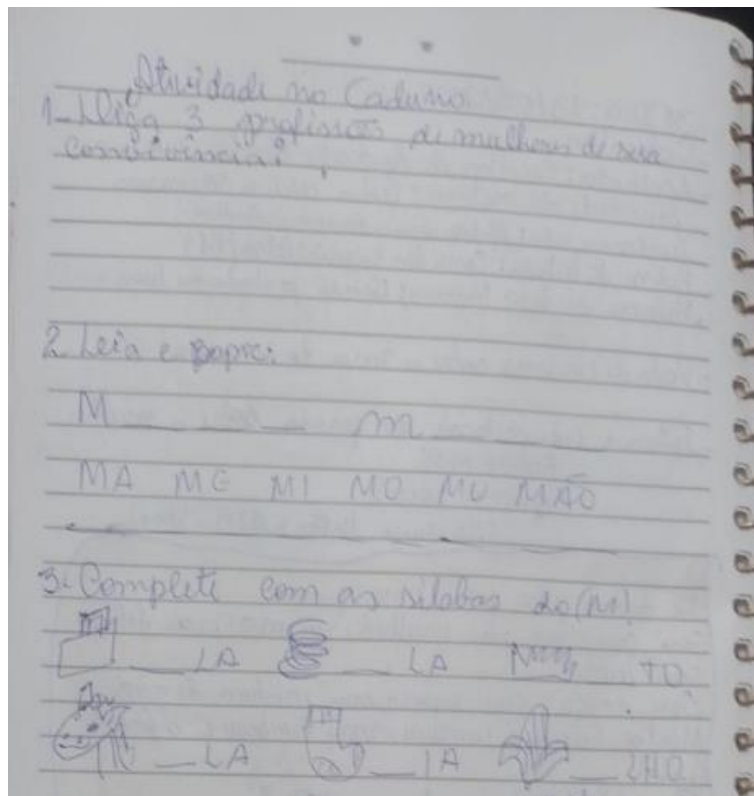 Atividade no Caderno
1- Diga 3 profissões de mulheres de sua
convivência:
2. Leia e copie:
M _ _ _ m _ _ _
MA ME MI MO MU MÃO
3- Complete com as sílabas do (M)
_ LA _ LA _ TO
_ LA _ IA _ LHO